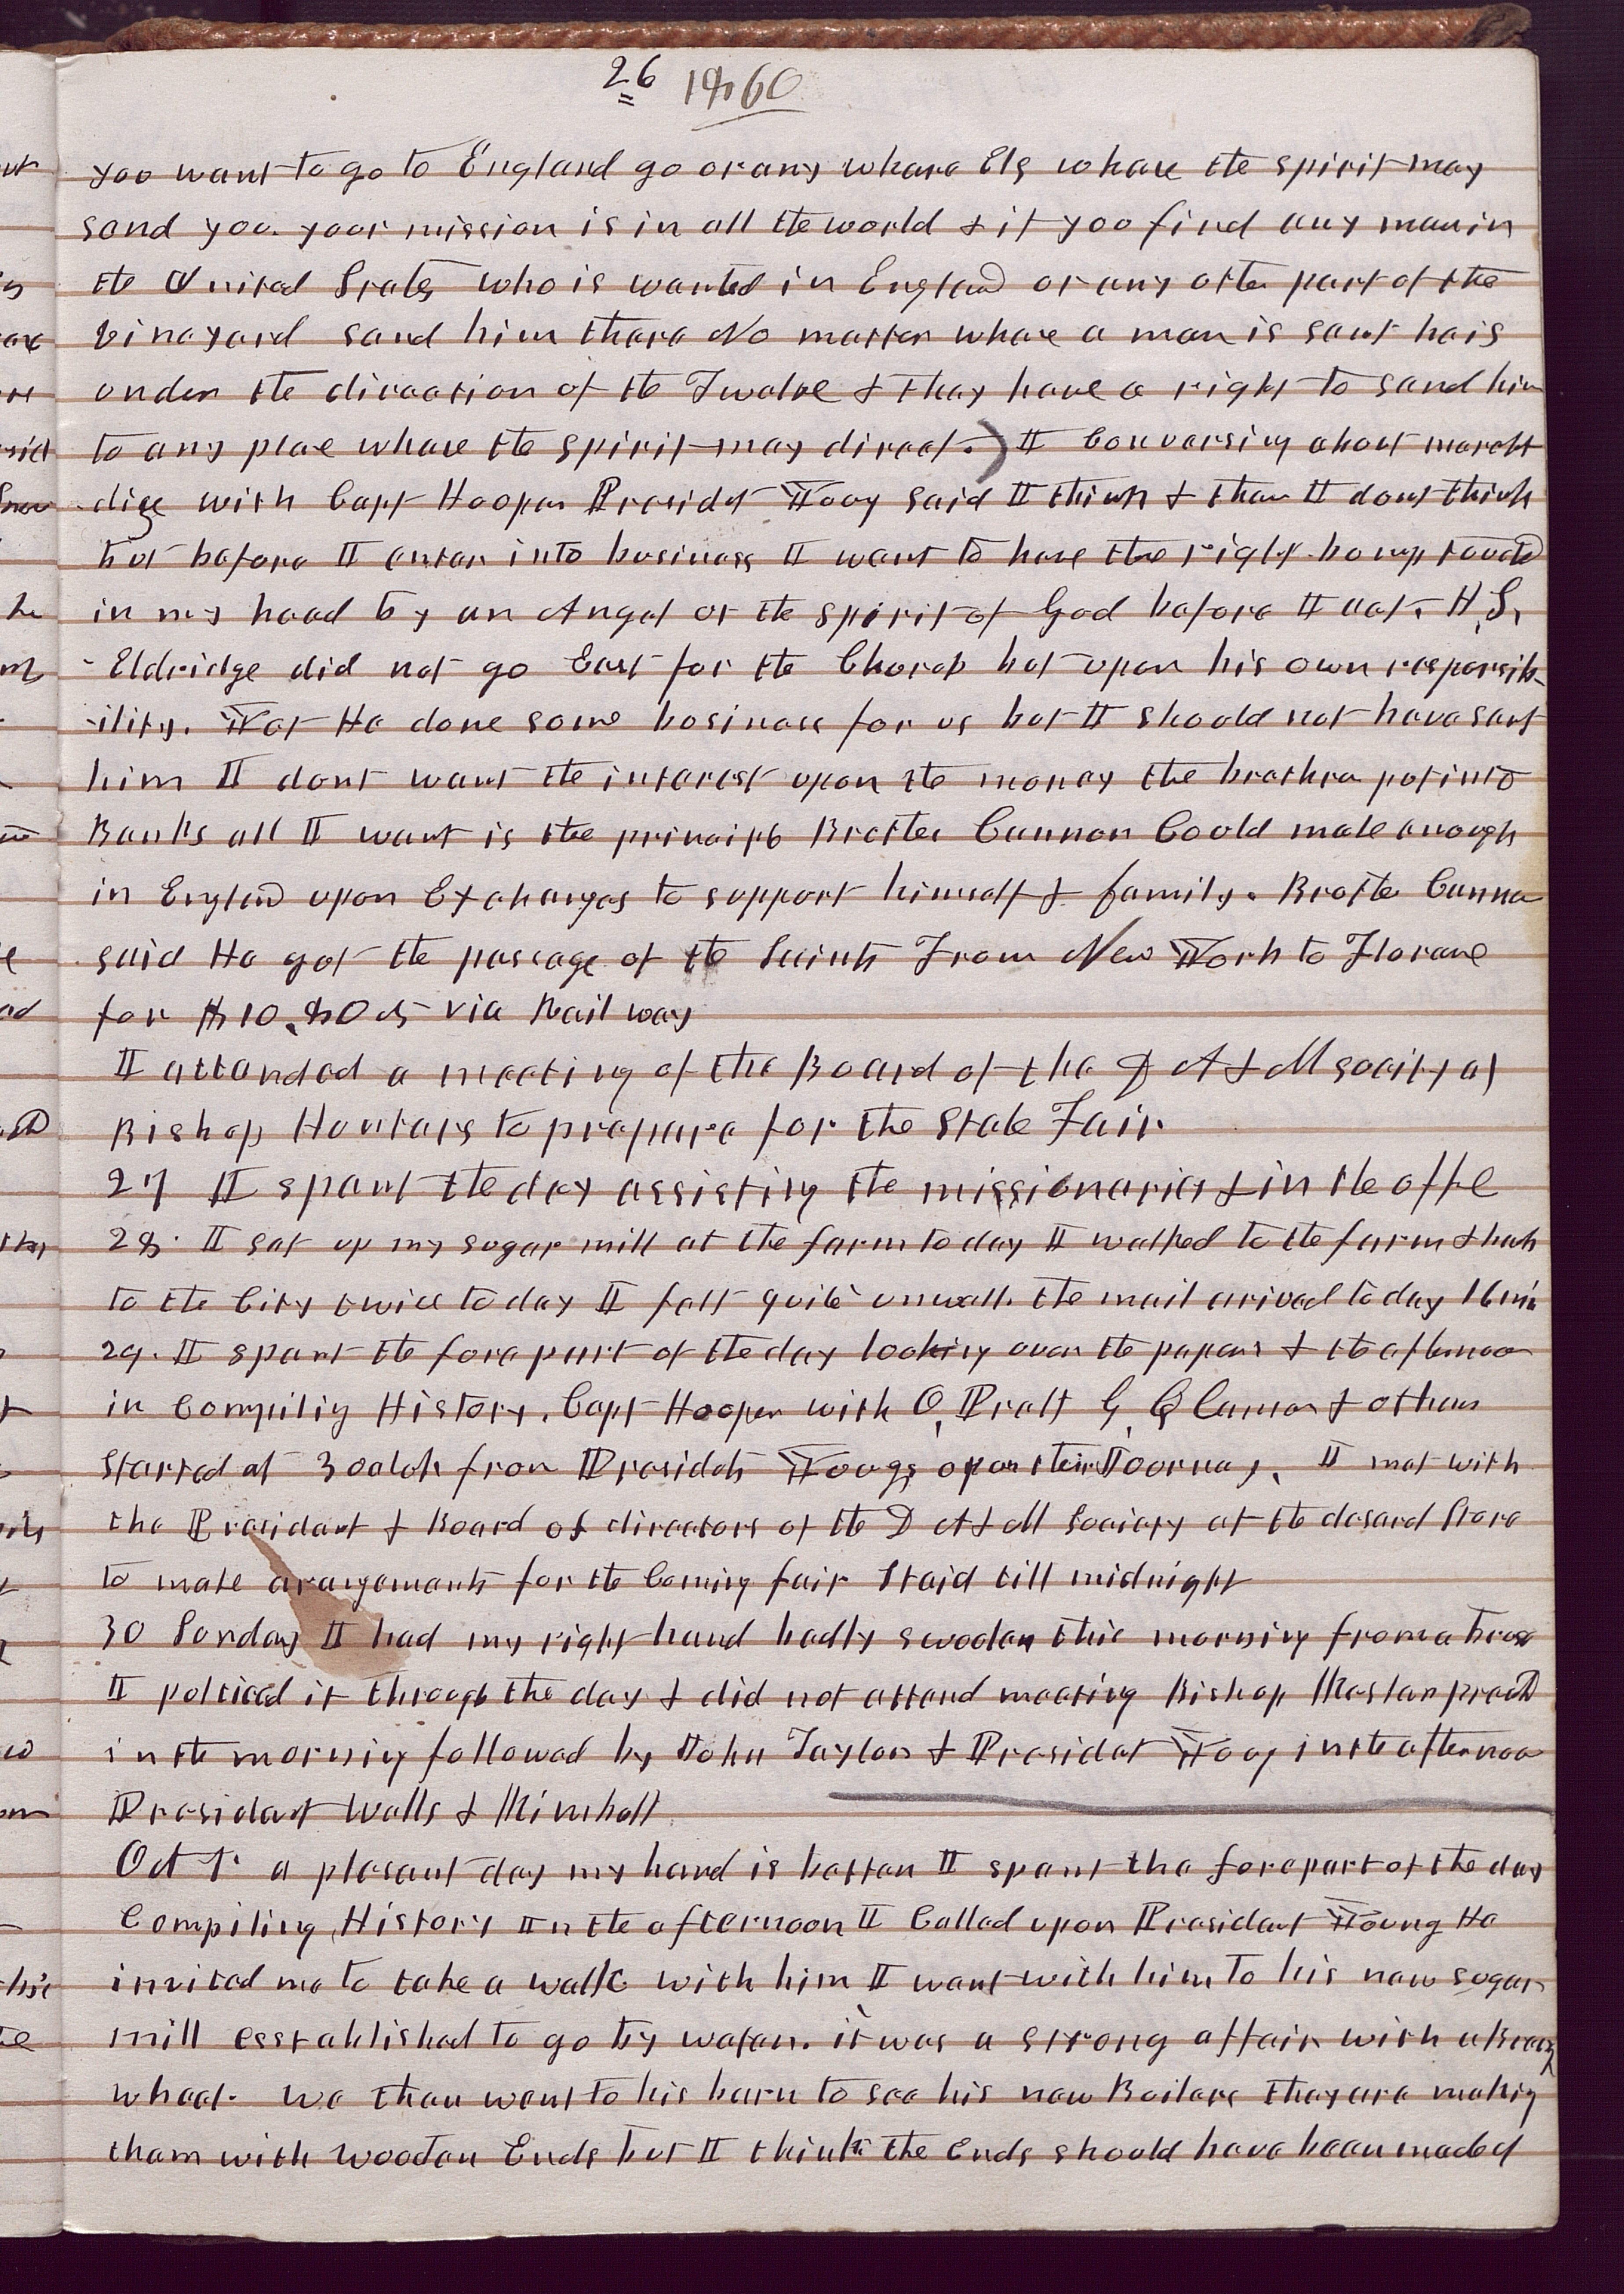 26 1860
you want to go to England go or any whare Els whare the spirit may
send you. your mission is in all the world & if you find any man in
the United States who is wanted in England or any other part of the
vineyard send him there No matter whare a man is sent he is
under the direction of the Twelve & they have a right to send him
to any place whare the spirit may direct.) I Conversing about march
dize with Capt Hooper Presidet Young said I think & then I dont think
but before I enter into business I want to have the right bump touched
in my head by an Angel or the spirit of God before I act. H. S.
-Eldridge did not go East for the Church but upon his own responsib-
-ility. Yet He done some business for us but I should not have sent
him I dont want the interest upon the money the brethren put into
Banks all I want is the principle Brother Cannon Could make enough
in England upon Exchanges to support himself & family. Brother Cannon
said He got the passage of the Saints From New York to Florance
for $10.80 cts via Rail way
I attended a meeting of the Board of the D A & M Society at
Bishop Hunters to prepare for the State Fair
27 I spent the day assisting the missionaries & in the office
28. I set up my sugar mill at the farm to day I walked to the farm & back
to the City twice to day I felt quite unwell. the mail arived to day 16 mi
29. I spent the fore part of the day looking over the papers & the afternoon
in Compiling History. Capt Hooper with O, Pratt G, Q Cannon & others
Started at 3 oclok from Presidets Youngs upon their Journey. I met with
the President & Board of directors of the D A & M Society at the deserd Store
to make arangements for the Coming fair Staid till midnight
30 Sunday I had my right hand badly swoolen this morning from a bruse
I polticed it through the day & did not attend meeting Bishop Keslar preachd
in the morning followed by John Taylor & Presidet Young in the afternoon
President Wells & Kimball
Oct 1. a plesant day my hand is better I spent the fore part of the day
Compiling History In the afternoon I Called upon President Young He
invited me to take a walk with him I went with him to his new sugar
mill esstablished to go by water. it was a strong affair with a Breast
wheel. we then went to his barn to see his new Boilers they are making
them with wooden Ends but I think the Ends should have been made of